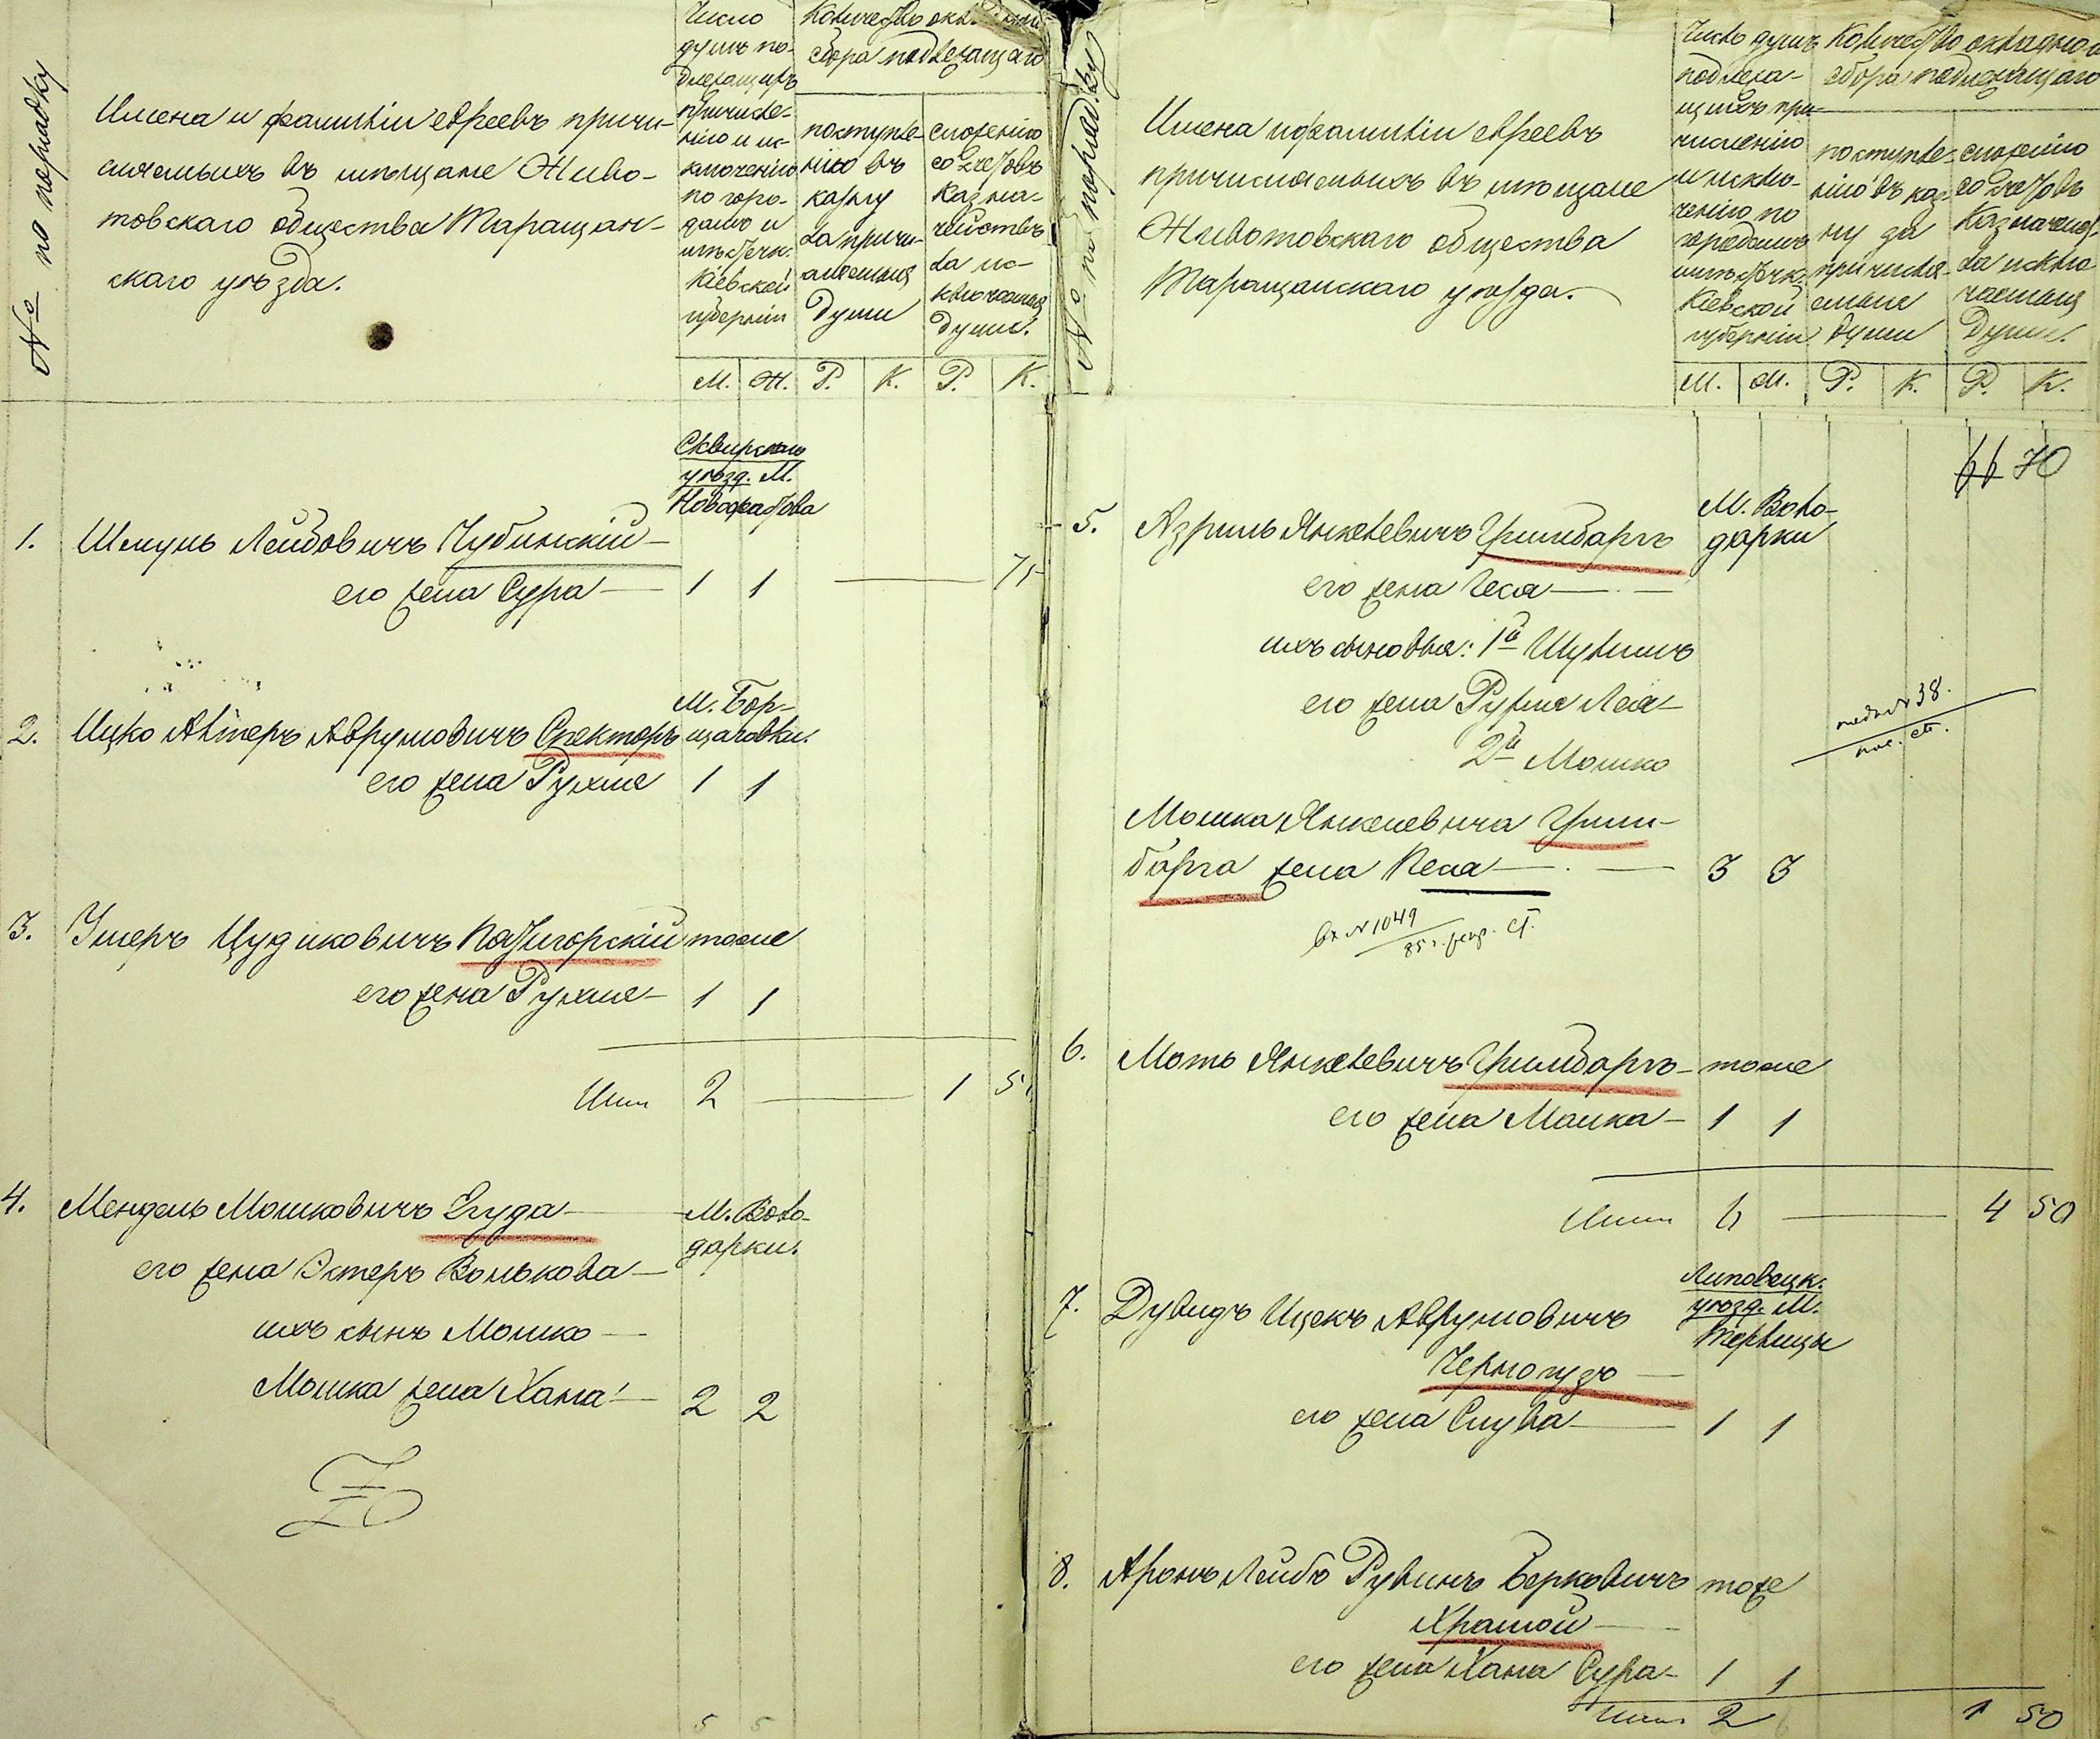 № по порядку
Имена и фамиліи евреевъ причи-
сляемыхъ въ мѣщане Живо-
товскаго общества Таращан-
скаго уѣзда.
Число
душъ по-
длежащихъ
причисле-
нію и ис-
ключенію
по горо-
дамъ и
мѣстечк.
Кіевской
губерніи
Количество
сбора подлежащаго
поступле-
нію въ
казну
за причи-
сляемыя
души
сложенію
со счетовъ
Казна-
чействъ
за ис-
ключаемыя
души.
М. Ж. Р. К. Р. К.
Сквирскаго
уѣзд. М.
Новофастова
1. Шмуль Лейбовичъ Чубинскій
его жена Сура 1 1 75
М. Бор-
щаговки.
2. Ицко Альтеръ Аврумовичъ Спекторъ
его жена Рухля 1 1
3. Ушеръ Цудиковичъ Патигорскій тоже
его жена Рухля 1 1
Итого 2 1 5
4. Мендель Мошковичъ Егуда М. Воло-
дарки.
его жена Эстеръ Волькова
ихъ сынъ Мошко
Мошка жена Хана 2 2
5 5
№ по порядку
Имена и фамиліи евреевъ
причисляемыхъ въ мѣщане
Животовскаго общества
Таращанскаго уѣзда.
Число душъ
подлежа-
щихъ при-
численію
и исклю-
ченію по
городамъ
мѣстечк.
Кіевской
губерніи
Количество окладного
сбора подлежащаго
поступле-
нію въ каз-
ну за
причисля-
емыя
души
сложенію
со счетовъ
Казначейст.
за исклю-
чаемыя
души.
М. Ж. Р. К. Р. К.
70
5. Азриль Янкелевичъ Гринбаргъ М. Воло-
дарки
его жена Чеся
ихъ сыновья: 1й Шулимъ
его жена Рухля Лея
2й Мошко
№ 38.
Мошка Янкелевича Грин-
барга жена Песя 3 3
вх № 1049
85 г. ст.
6. Моть Янкелевичъ Гринбаргъ тоже
его жена Малка 1 1
Итого 4 50
Липовецк.
уѣзд. М.
7. Дувидъ Ицекъ Аврумовичъ
Черногузъ
его жена Слува 1 1
8. Аронъ Лейбъ Рувинъ Берковичъ тоже
Храмой
его жена Хана Сура 1 1
Итого 2 1 50